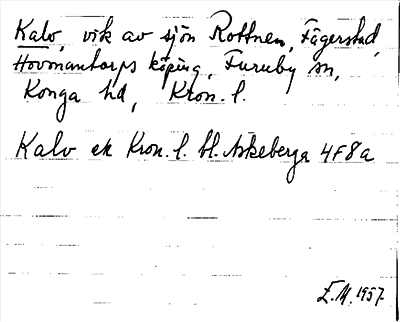 Kalv, vik av sjön Rottnen, Fägerstad,
Hovmantorps köping, Furuby sn,
Konga hd, Kron. l.
Kalv ek Kron. l. bl. Askeberga 4F8a
E.M. 1957.